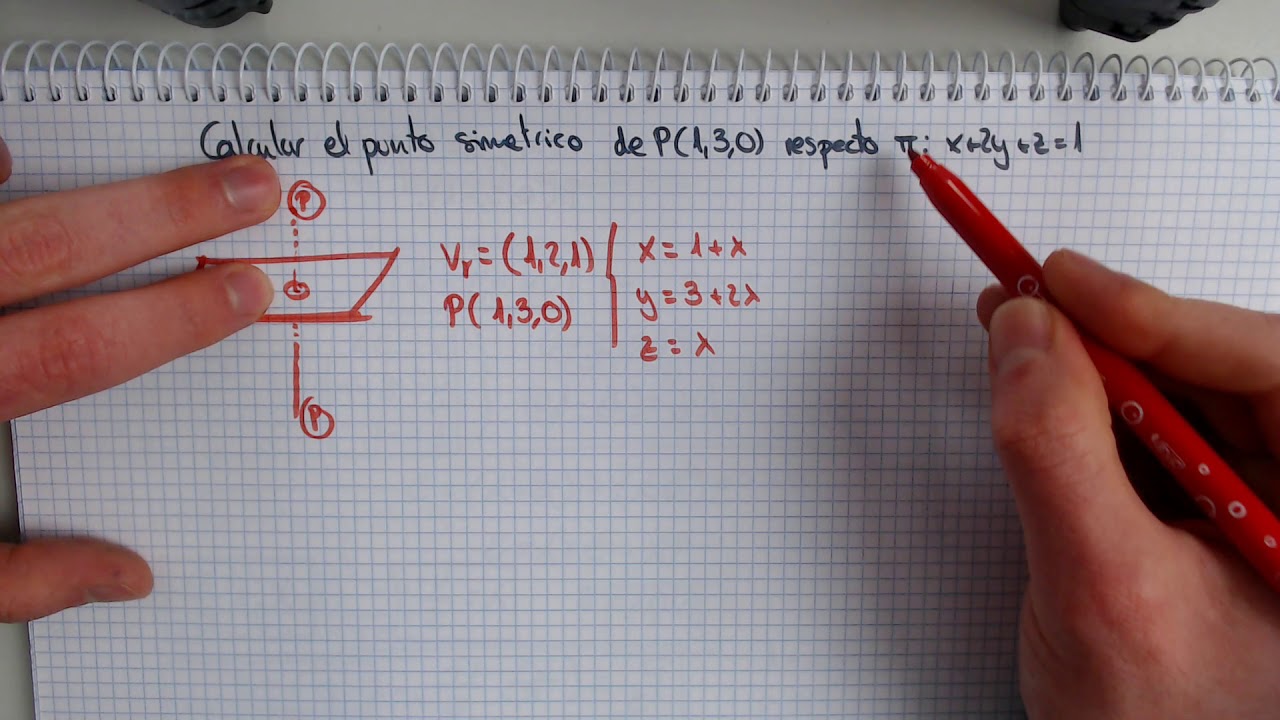 Calcular el punto simetrico de P(1,3,0) respecto π: x+2y+z=1
P
Vr=(1,2,1)
P(1,3,0)
x=1+λ
y=3+2λ
z=λ
P